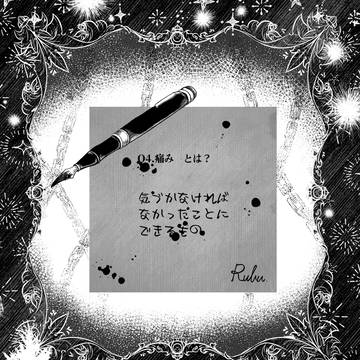 Q4.痛み　とは？
気づかなければ
なかったことに
できるもの
Rubu